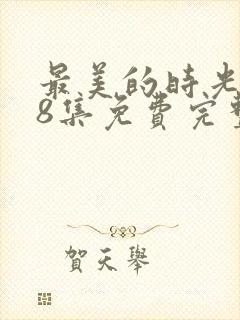 最美的时光
8集免費完整
賀天舉